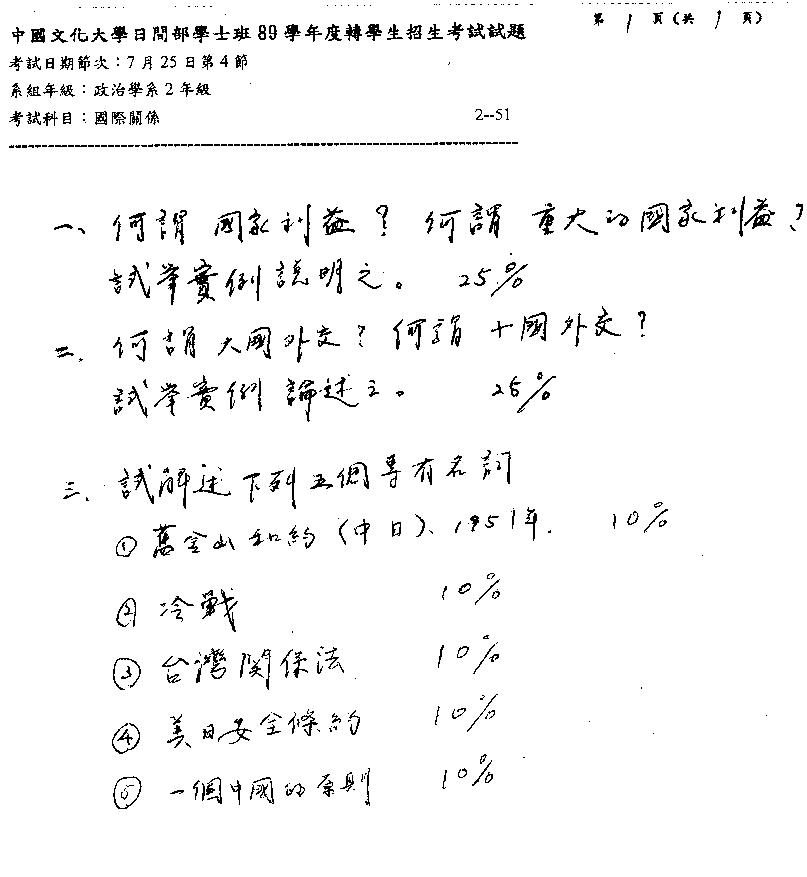 中國文化大學日間部學士班89學年度轉學生招生考試試題 第1頁(共1頁)
考試日期節次：7月25日第4節
系組年級：政治學系2年級
考試科目：國際關係 2--51
一、何謂國家利益？何謂重大的國家利益？
試舉實例說明之。 25%
二、何謂大國外交？何謂小國外交？
試舉實例論述之。 25%
三、試解述下列五個專有名詞
① 舊金山和約(中日)、1951年. 10%
② 冷戰 10%
③ 台灣関係法 10%
④ 美日安全條約 10%
⑤ 一個中國的原則 10%